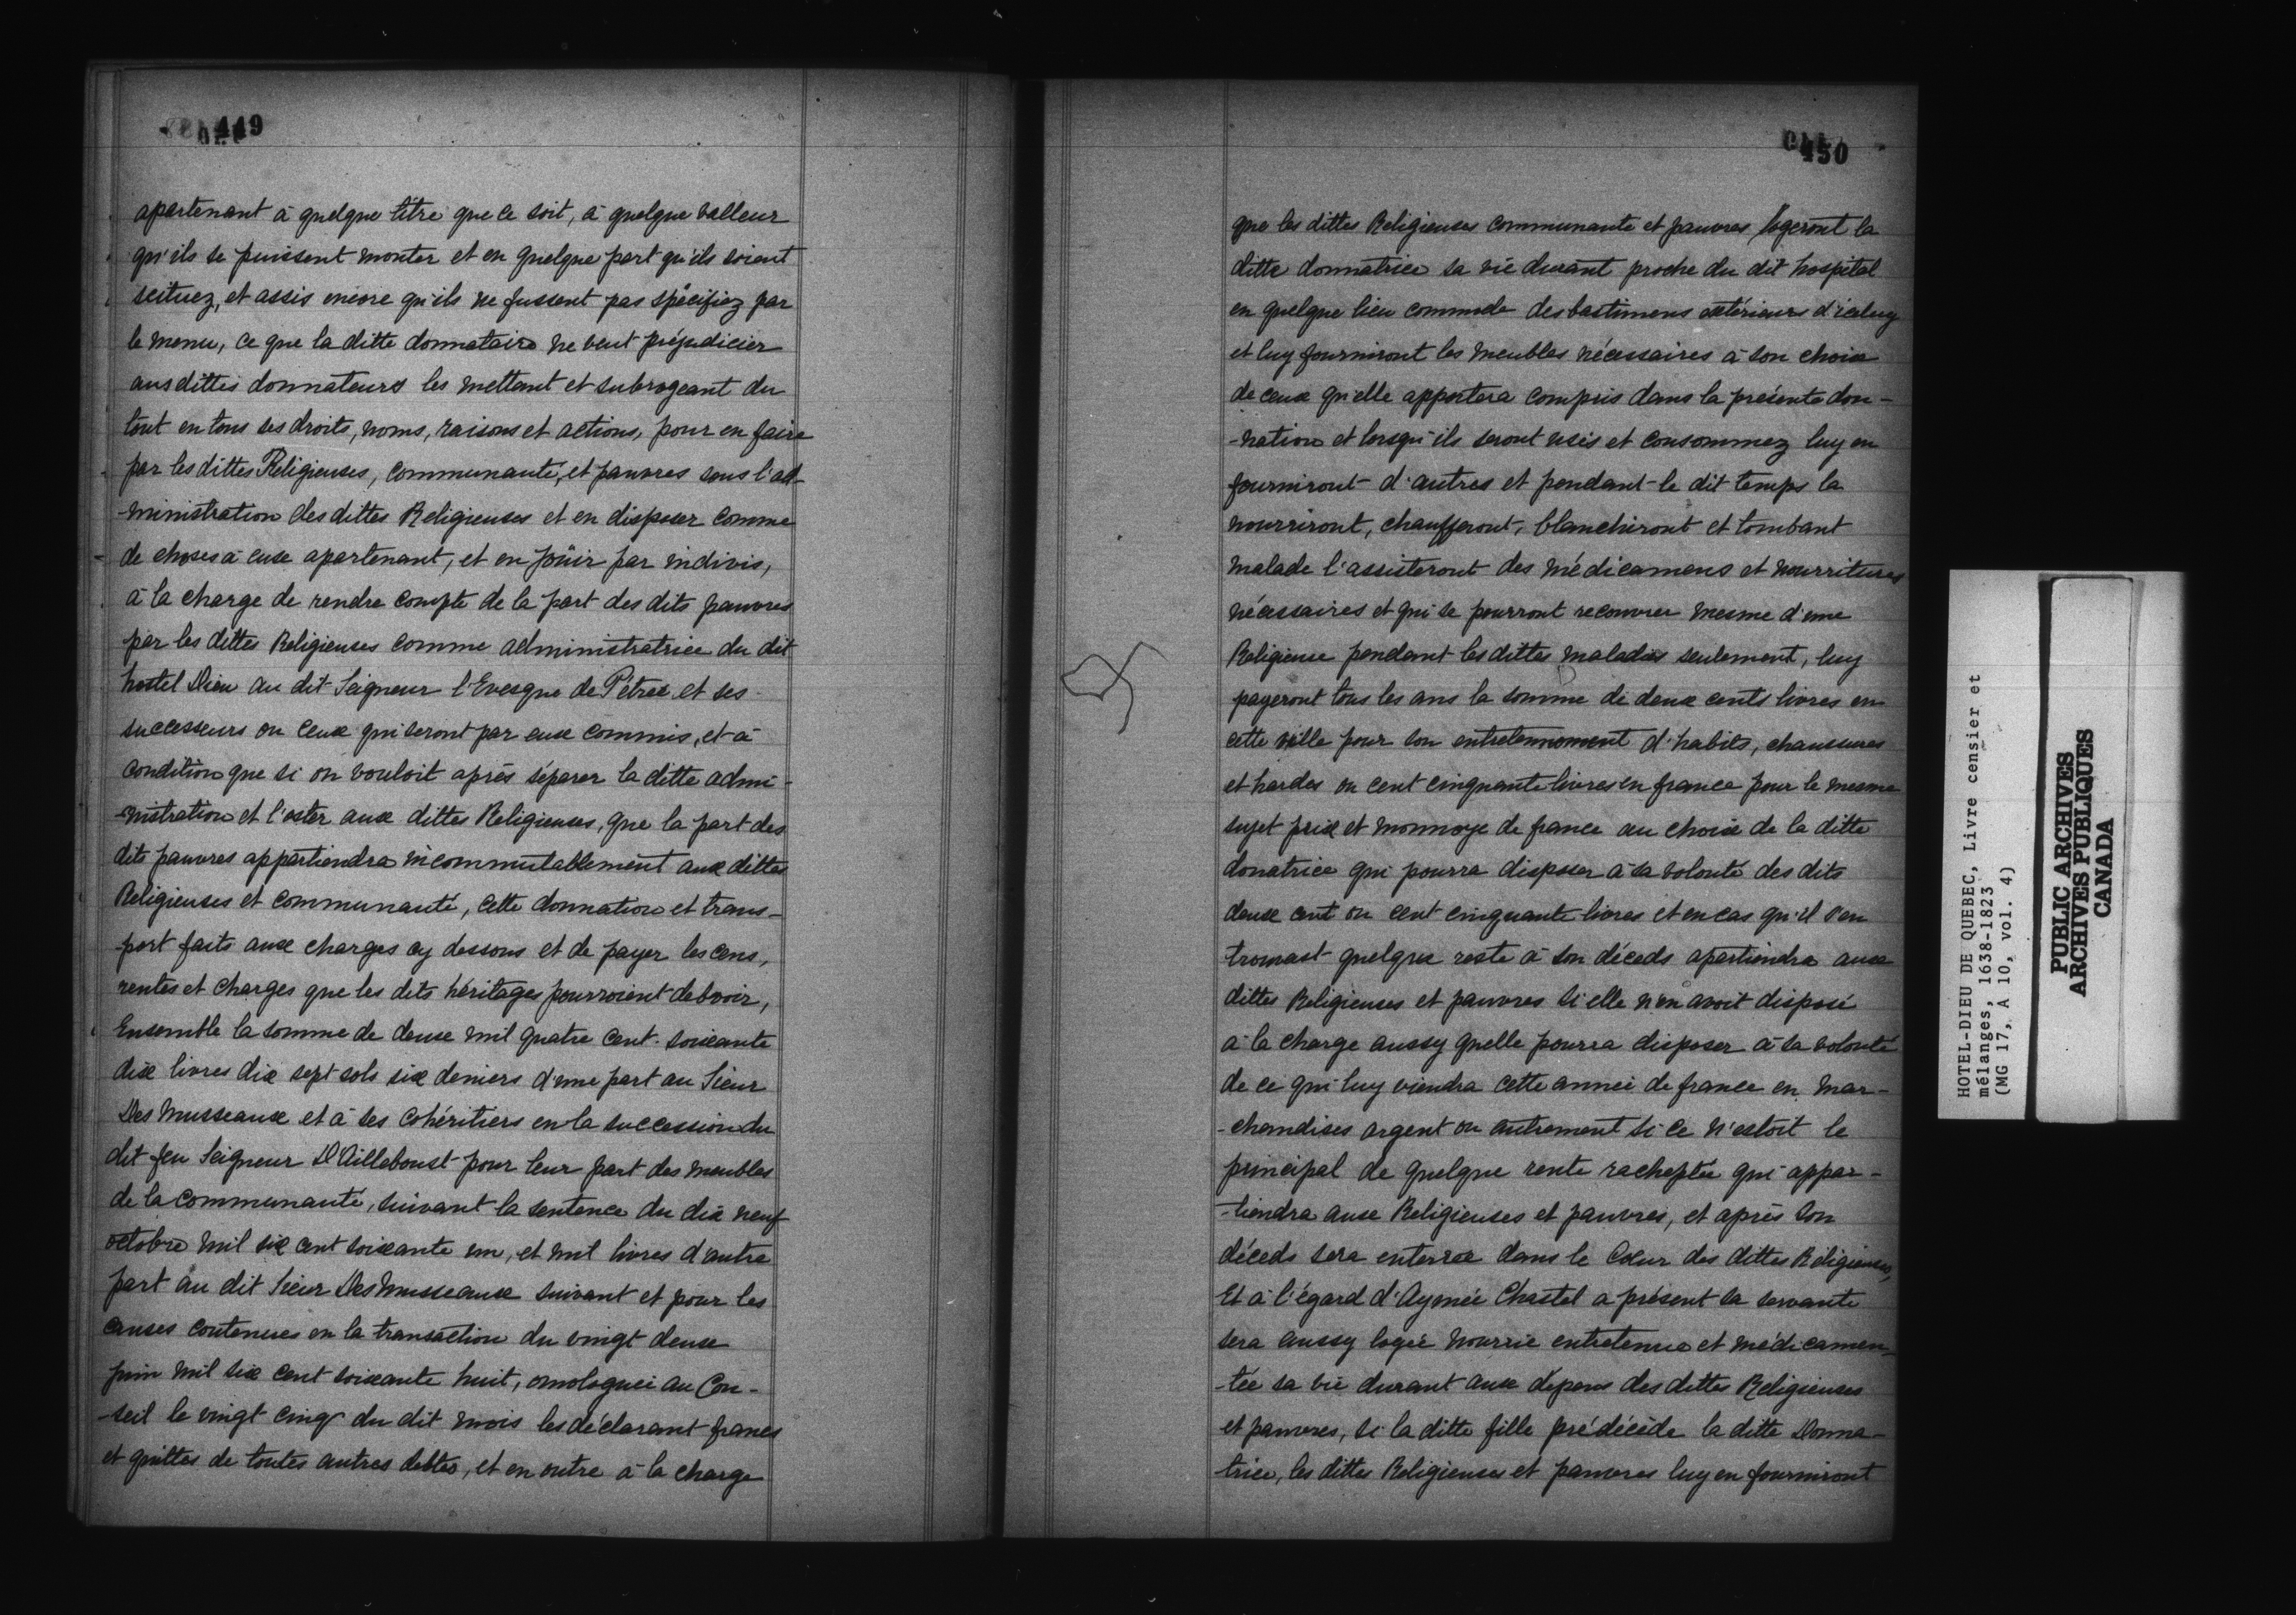 449
apartenant à quelque titre que ce soit, à quelque valleur
qu'ils se puissent monter et en quelque part qu'ils soient
scituez, et assis encore qu'ils ne fussent pas spécifiez par
le menu, ce que la ditte donnataire ne veut préjudicier
ausdittes donnateurs les mettant et subrogeant du
tout en tous ses droits, noms, raisons et actions, pour en faire
par les dittes Religieuses, communauté, et pauvres sous l'ad-
-ministration des dittes Religieuses et en disposer comme
de choses à eux apartenant, et en joüir par indivis,
à la charge de rendre compte de la part des dits pauvres
par les dittes Religieuses comme administratrice du dit
hostel Dieu au dit Seigneur l'Evesque de Pétrée et ses
successeurs ou ceux qui seront par eux commis, et à
condition que si on vouloit après séparer la ditte admi-
-nistration et l'oster aux dittes Religieuses, que la part des
dits pauvres appartiendra incommutablement aux dittes
Religieuses et communauté, cette donnation et trans-
-port faits aux charges cy dessous et de payer les cens,
rentes et charges que les dits héritages pourroient debvoir,
Ensemble la somme de deux mil quatre cent soixante
dix livres dix sept sols six deniers d'une part au Sieur
Des Musseaux et à ses cohéritiers en la succession du
dit feu Seigneur D'Ailleboust pour leur part des meubles
de la communauté, suivant la sentence du dix neuf
octobre mil six cent soixante un, et mil livres d'autre
part au dit Sieur Des Musseaux suivant et pour les
causes contenues en la transaction du vingt deux
juin mil six cent soixante huit, omologuéi au Con-
-seil le vingt cinq du dit mois les déclarant francs
et quittes de toutes autres debtes, et en outre à la charge
450
que les dittes Religieuses communauté et pauvres logeront la
ditte donnatrice sa vie durant proche du dit hospital
en quelque lieu commode des bastimens extérieurs d'iceluy
et luy fourniront les meubles nécessaires à son choix
de ceux qu'elle apportera compris dans la présente don-
-nation et lorsqu'ils seront usés et consommez luy en
fourniront d'autres et pendant le dit temps la
nourriront, chaufferont, blanchiront et tombant
malade l'assisteront des médicamens et nourritures
nécessaires et qui se pourront recouvrer mesme d'une
Religieuse pendant les dittes maladies seulement, luy
payeront tous les ans la somme de deux cents livres en
cette ville pour son entretennement d'habits, chaussures
et hardes ou cent cinquante livres en france pour le mesme
sujet prix et monnoye de france au choix de la ditte
donatrice qui pourra disposer à sa volonté des dits
deux cent ou cent cinquante livres et en cas qu'il s'en
trouvast quelque reste à son déceds apartiendra aux
dittes Religieuses et pauvres si elle n'en avoit disposé
à la charge aussy quelle pourra disposer à sa volonté
de ce qui luy viendra cette année de france en mar-
-chandises argent ou autrement si ce n'estoit le
principal de quelque rente racheptée qui appar-
-tiendra aux Religieuses et pauvres, et après son
déceds sera enterrée dans le Cœur des dittes Religieuses,
Et à l'égard d'Aymée Chastel a présent sa servante
sera aussy logée nourrie entretenue et médicamen-
-tée sa vie durant aux dépens des dittes Religieuses
et pauvres, si la ditte fille prédécède la ditte Donna-
-trice, les dittes Religieuses et pauvres luy en fourniront
HOTEL-DIEU DE QUEBEC, Livre censier et
mélanges, 1638-1823
(MG 17, A 10, vol. 4)
PUBLIC ARCHIVES
ARCHIVES PUBLIQUES
CANADA